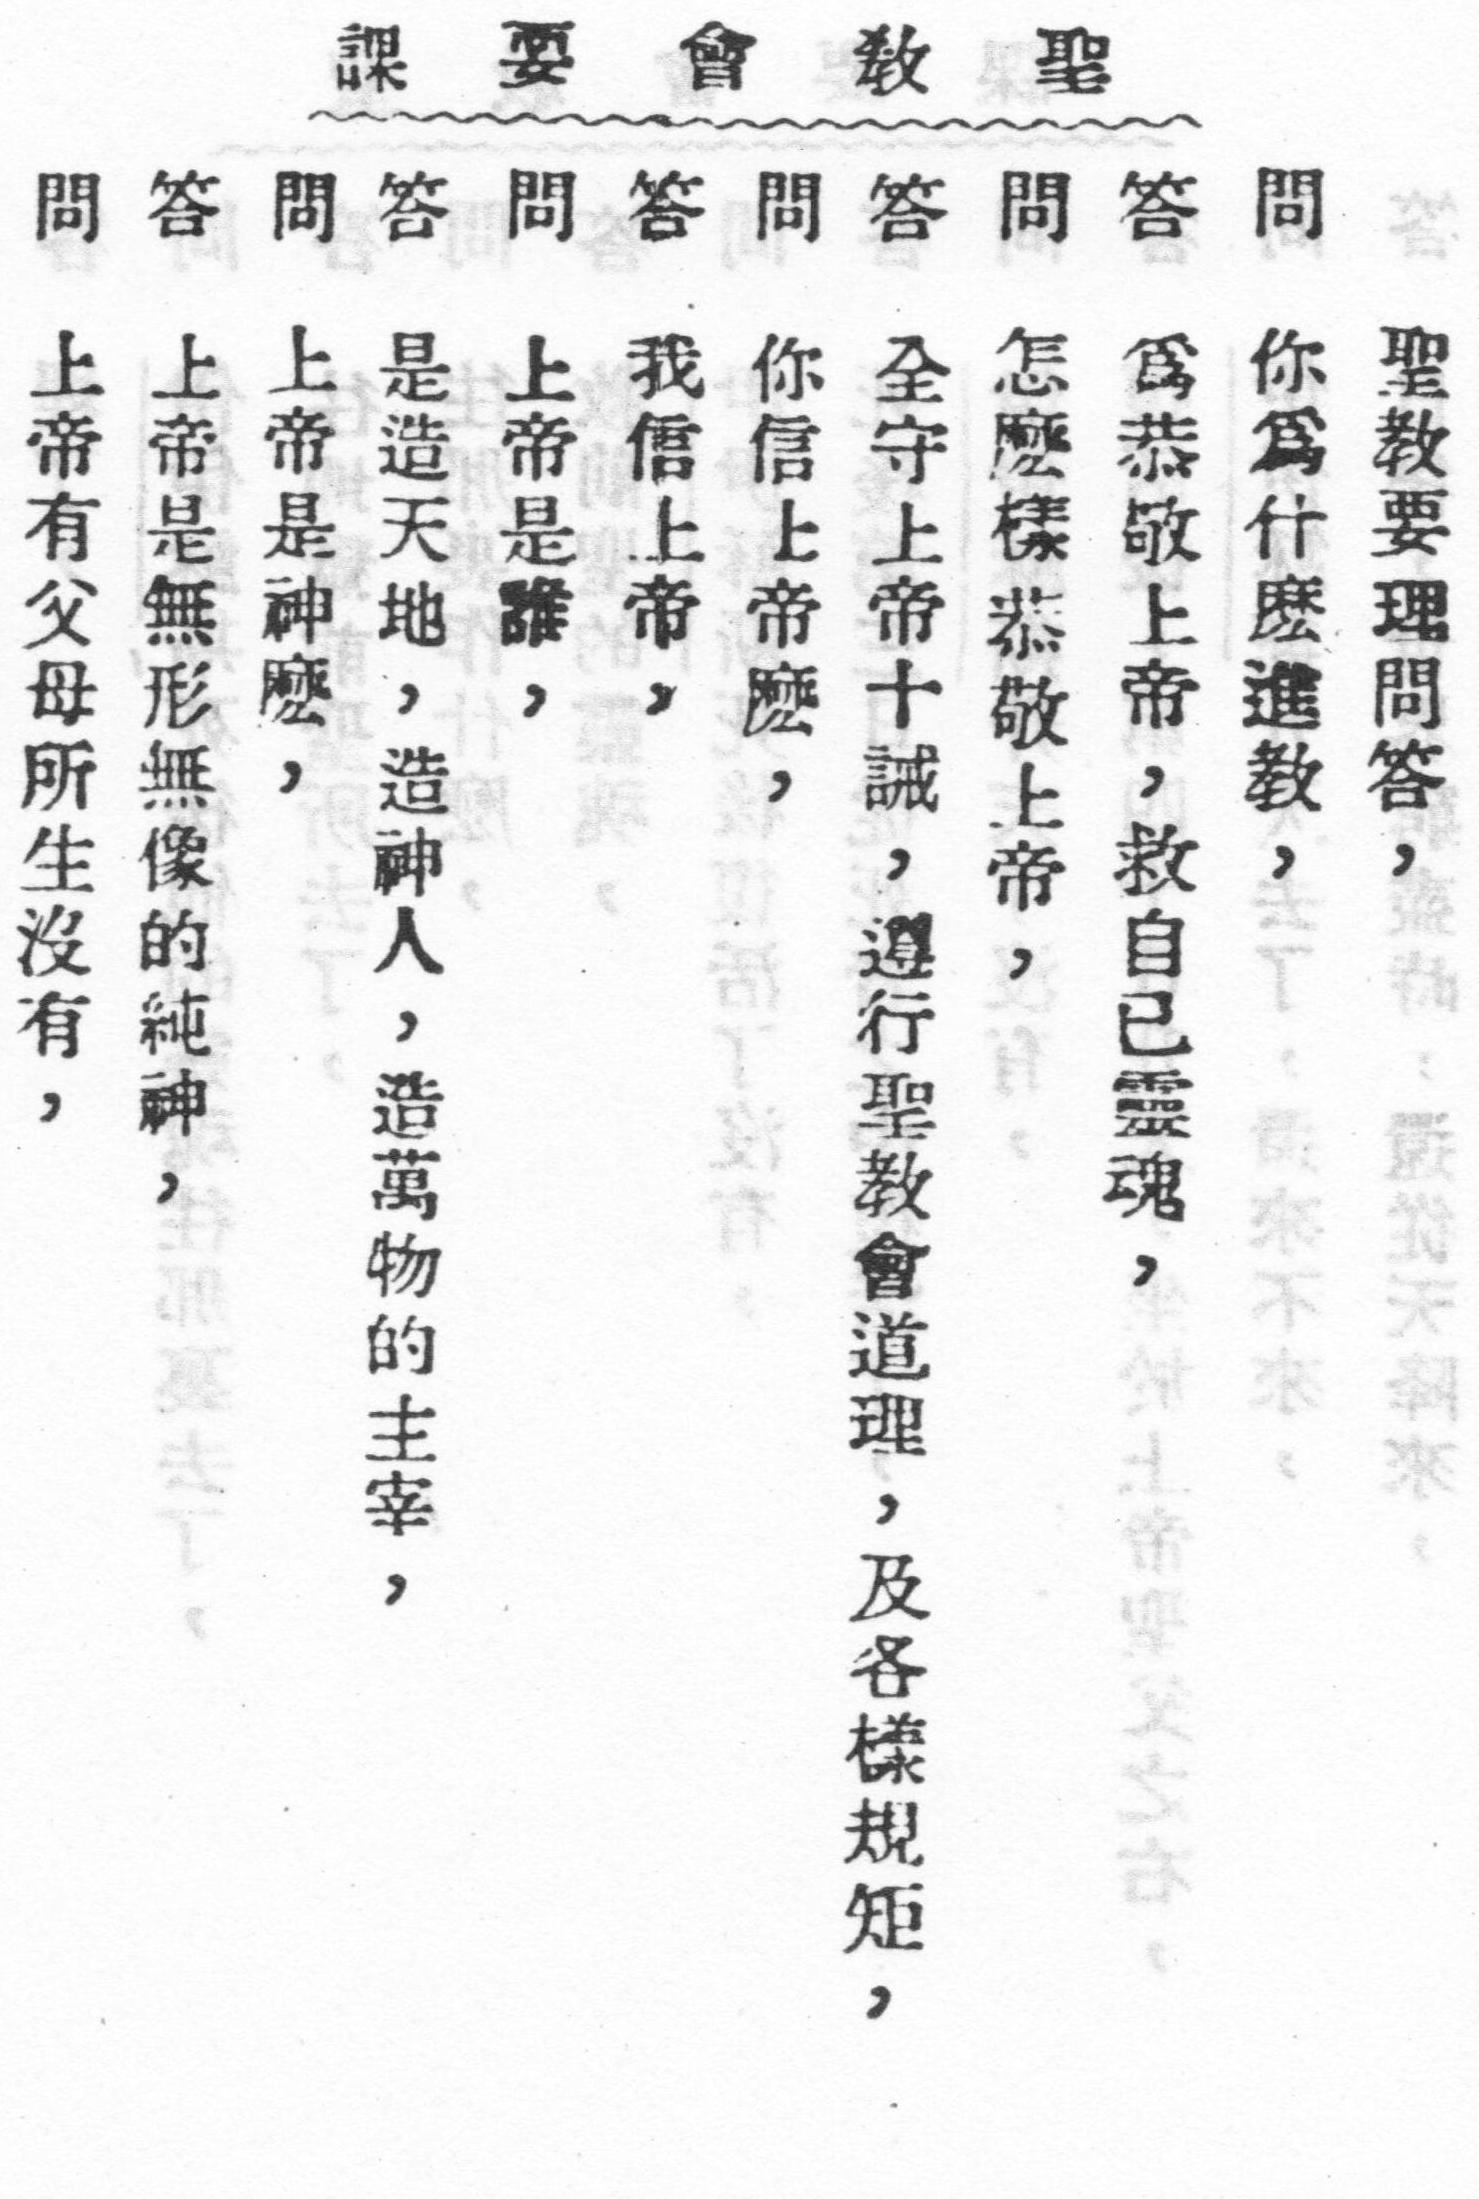 聖教會要課
聖教要理問答，
問 你爲什麽進教，
答 爲恭敬上帝，救自已靈魂，
問 怎麽樣恭敬上帝，
答 全守上帝十誡，遵行聖教會道理，及各樣規矩，
問 你信上帝麽，
答 我信上帝，
問 上帝是誰，
答 是造天地，造神人，造萬物的主宰，
問 上帝是神麽，
答 上帝是無形無像的純神，
問 上帝有父母所生沒有，